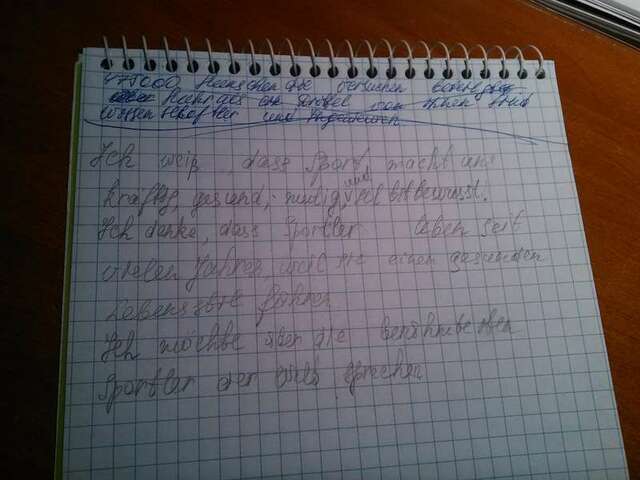 475000 Menschen die
Mehr als die von ihnen sind
Wissenschaftler und
Ich weiß, dass Sport macht uns
kräftig, gesund, mudig und selbstbewusst.
Ich denke, dass Sportler leben seit
vielen Jahren, weil sie einen gesunden
Lebensstil führen
Ich möchte über die berühmtesten
Sportler der Welt sprechen